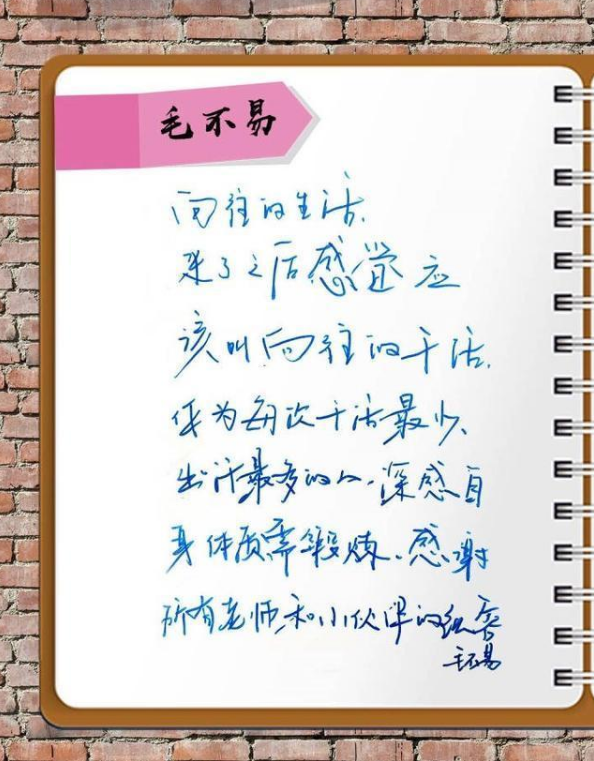 毛不易
向往的生活.
来了之后感觉应
该叫向往的干活.
作为每次干活最少、
出汗最多的人.深感自
身体质需锻炼、感谢
所有老师和小伙伴的纵容
毛不易